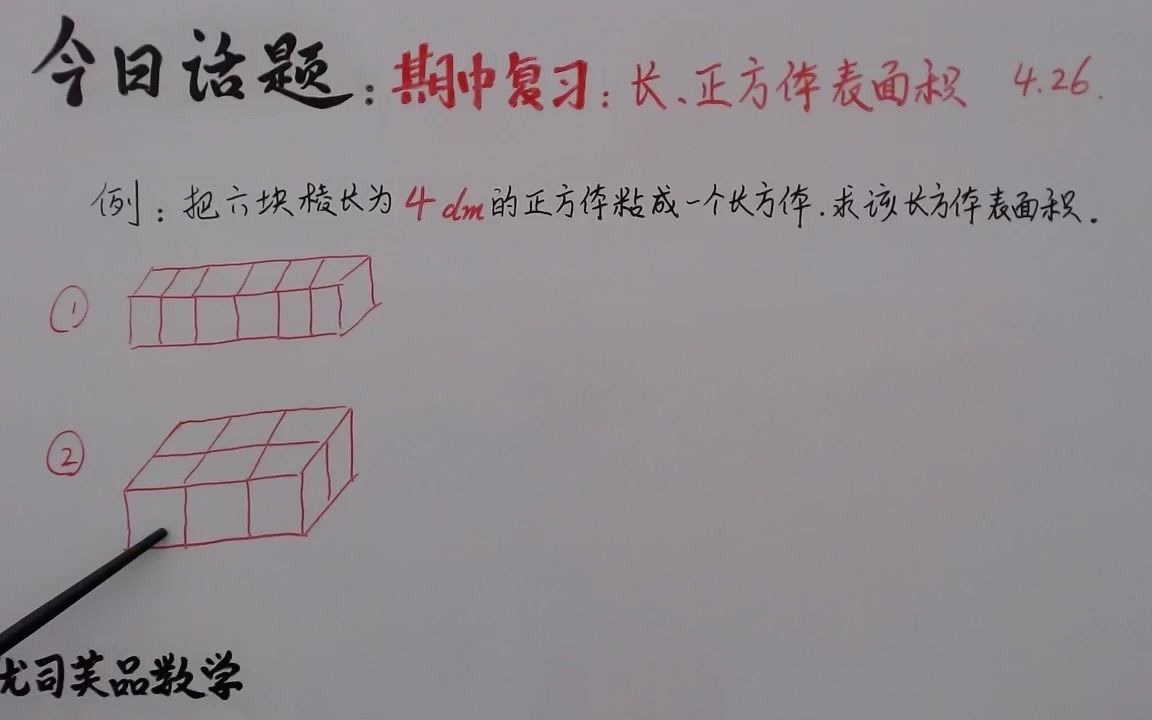 今日话题：期中复习：长、正方体表面积 4.26.
例：把六块棱长为4dm的正方体粘成一个长方体.求该长方体表面积.
①
②
尤司芙品数学